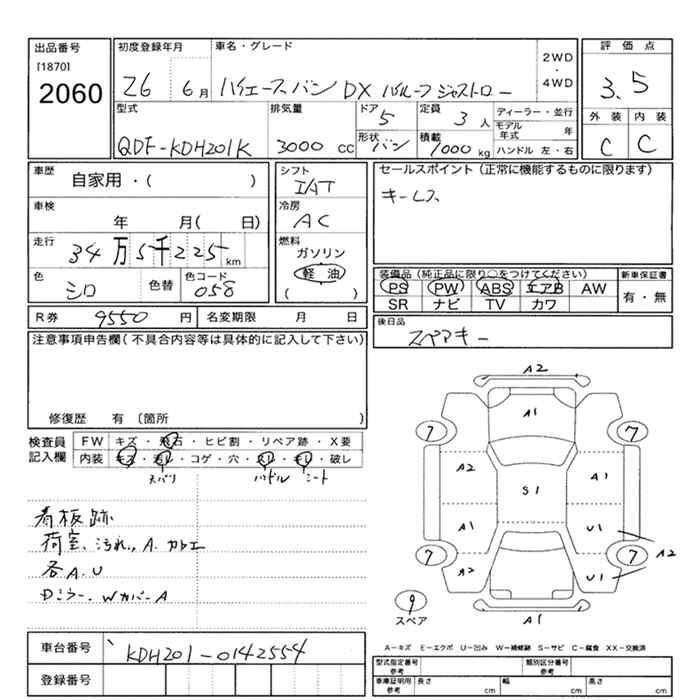 出品番号
[1870]
2060
初度登録年月
26 6月
車名・グレード
ハイエースバン DX ハイルーフ ジャストロー
2WD
・
4WD
評価点
3.5
外装 内装
C C
型式
QDF-KDH201K
排気量
3000 cc
ドア
5
形状 バン
定員
3 人
積載
1000 kg
ディーラー・並行
モデル年式 年
ハンドル 左・右
車歴
自家用・( )
車検
年 月( 日)
走行
34万5千225 km
色
シロ
色替
色コード
058
シフト
IAT
冷房
AC
燃料
ガソリン
軽油
( )
セールスポイント(正常に機能するものに限ります)
キーレス
装備品(純正品に限り○をつけてください)
PS PW ABS エアB AW
SR ナビ TV カワ
新車保証書
有・無
R券 9550 円 名変期限 月 日
後日品
スペアキー
注意事項申告欄(不具合内容等は具体的に記入して下さい)
修復歴 有 〔箇所 〕
検査員記入欄
FW キズ・飛石・ヒビ割・リペア跡・X要
内装 キズ・汚レ・コゲ・穴・スレ・キレ・破レ
天バリ ハンドル シート
看板跡
荷室、汚れ、A.カケエ
各A.U
Dミラー、Wカバ-A
A2
A1
7 7
A2 A1
S1
A1 U1
A2
7 7
A2 U1
9
スペア
A1
A-キズ E-エクボ U-凹み W-補修跡 S-サビ C-腐食 XX-交換済
車台番号 KDH201-0142554
登録番号
型式指定番号
参考
類別区分番号
参考
車庫証明用
参考
長さ cm 幅 cm 高さ cm